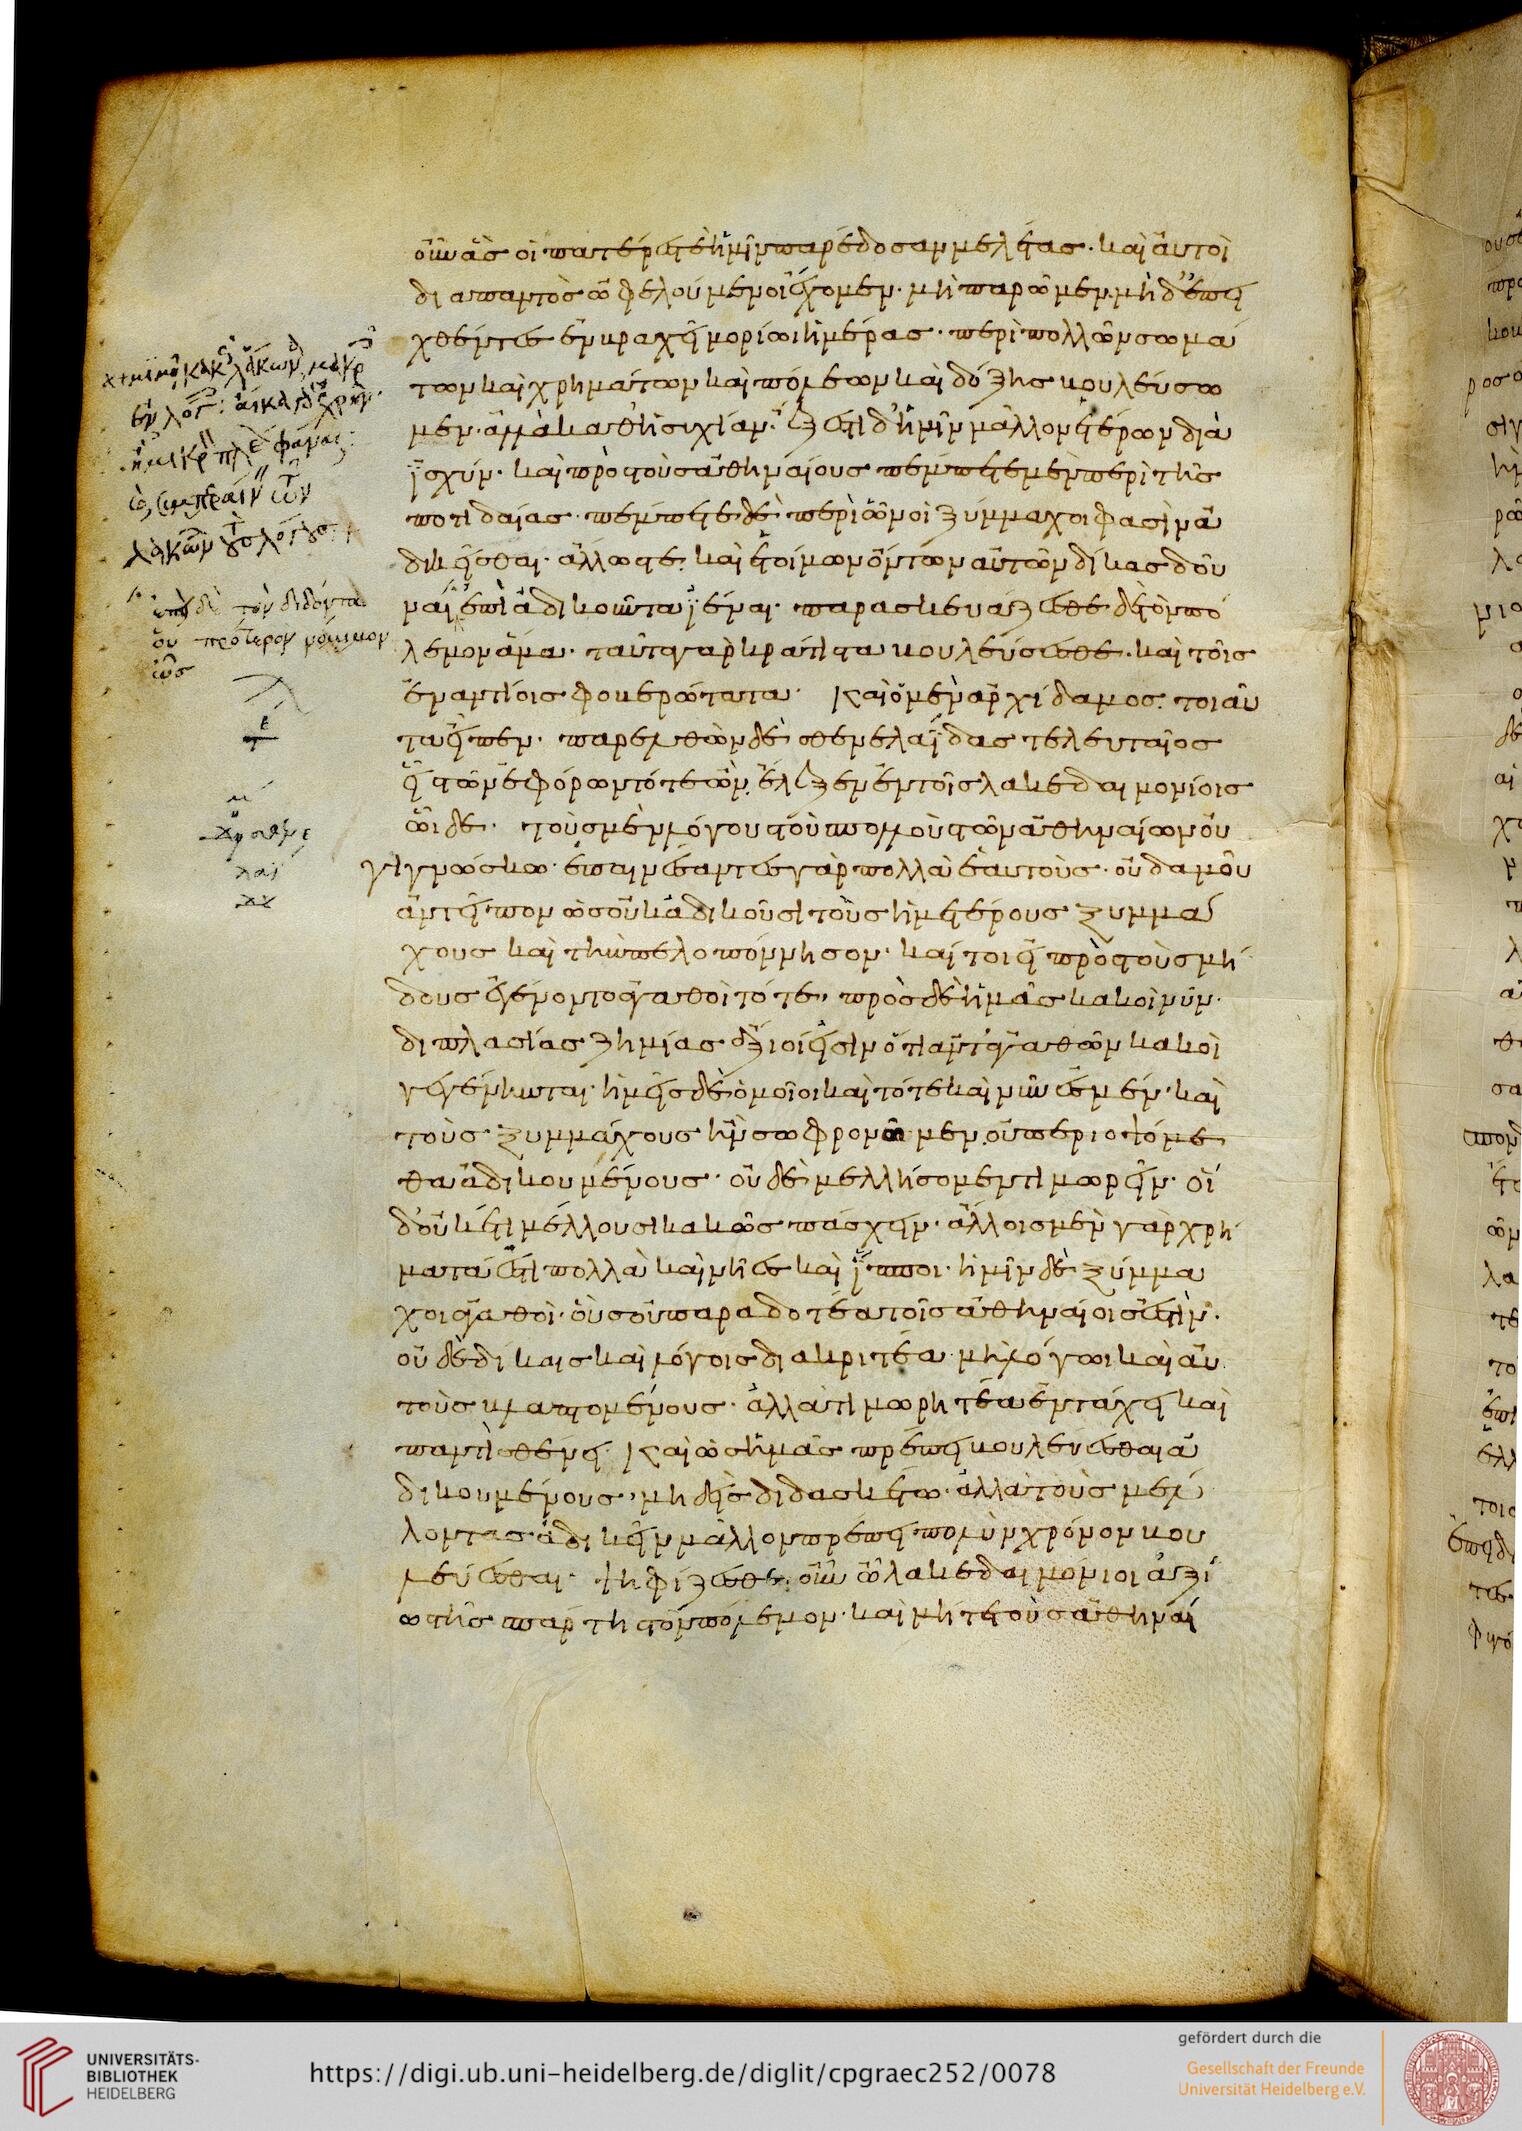 οὖν ἃς οἱ πατέρες τε ἡμῖν παρέδοσαν μελέτας· καὶ αὐτοὶ
διαπαντὸς ὠφελούμενοι ἔχομεν· μὴ παρῶμεν· μηδ' ἐπει
χθέντες ἐν βραχεῖ μορίωι ἡμέρας· περὶ πολλῶν σωμά
των καὶ χρημάτων καὶ πόλεων καὶ δόξης βουλεύσω
μεν· ἀλλὰ καθ' ἡσυχίαν· ἔξεστι δ' ἡμῖν μᾶλλον ἑτέρων διὰ
ἰσχύν· καὶ πρὸς τοὺς ἀθηναίους πέμπετε μὲν περὶ τῆς
ποτιδαίας· πέμπετε δὲ περὶ ὧν οἱ ξύμμαχοι φασὶν ἀ
δικεῖσθαι· ἄλλως τε καὶ ἑτοίμων ὄντων αὐτῶν δίκας δοῦ
ναι ἐπὶ ἀδικοῦντα ϊέναι· παρασκευάζεσθε δὲ τὸν πό
λεμον ἅμα· ταῦτα γὰρ κράτιστα βουλεύσεσθε· καὶ τοῖς
ἐναντίοις φοβερώτατα· Καὶ ὁ μὲν ἀρχίδαμος τοιαῦ
τα εἶπεν· παρελθὼν δὲ σθενελαΐδας τελευταῖος
εἷς τῶν ἐφόρων τότε ὤν, ἔλεξεν ἐν τοῖς λακεδαιμονίοις
ὧιδε· τοὺς μὲν λόγους τοὺς πολλοὺς τῶν ἀθηναίων οὐ
γιγνώσκω· ἐπαινέσαντες γὰρ πολλὰ ἑαυτοὺς· οὐδαμοῦ
ἀντεῖπον ὡς οὐκ ἀδικοῦσι τοὺς ἡμετέρους ξυμμά
χους καὶ τὴν πελοπόννησον· καί τοι εἰ πρὸς τοὺς μή
δους ἐγένοντο ἀγαθοὶ τότε, πρὸς δὲ ἡμᾶς κακοὶ νῦν·
διπλασίας ζημίας ἄξιοί εἰσιν ὅτι ἀντ' ἀγαθῶν κακοὶ
γεγένηνται· ἡμεῖς δὲ ὁμοῖοι καὶ τότε καὶ νῦν ἐσμέν· καὶ
τοὺς ξυμμάχους ἢν σωφρονῶμεν, οὐ περιοψόμε
θα ἀδικουμένους· οὐδὲ μελλήσομεν τιμωρεῖν· οἱ
δ' οὐκέτι μέλλουσι κακῶς πάσχειν· ἄλλοις μὲν γὰρ χρή
ματά ἐστι πολλὰ καὶ νῆες καὶ ἵπποι· ἡμῖν δὲ ξύμμα
χοι ἀγαθοί· οὓς οὐ παραδοτέα τοῖς ἀθηναίοις ἐστὶν·
οὐδὲ δίκαις καὶ λόγοις διακριτέα· μὴ λόγωι καὶ αὐ
τοὺς βλαπτομένους· ἀλλὰ τιμωρητέα ἐν τάχει καὶ
παντὶ σθένει· Καὶ ὡς ἡμᾶς πρέπει βουλεύεσθαι ἀ
δικουμένους, μηδεὶς διδασκέτω· ἀλλὰ τοὺς μέλ
λοντας ἀδικεῖν μᾶλλον πρέπει πολὺν χρόνον βου
λεύεσθαι· ψηφίζεσθε οὖν ὦ λακεδαιμόνιοι ἀξί
ως τῆς σπάρτης τὸν πόλεμον· καὶ μήτε τοὺς ἀθηναί
τὸν διδόντα
οὐ πρότερον νόμιμον
ὡς
UNIVERSITÄTS-
BIBLIOTHEK
HEIDELBERG
https://digi.ub.uni-heidelberg.de/diglit/cpgraec252/0078
gefördert durch die
Gesellschaft der Freunde
Universität Heidelberg e.V.